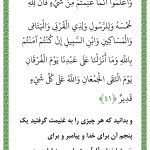 وَاعْلَمُوا أَنَّمَا غَنِمْتُمْ مِنْ شَيْءٍ فَأَنَّ لِلَّهِ
خُمُسَهُ وَلِلرَّسُولِ وَلِذِي الْقُرْبَىٰ وَالْيَتَامَىٰ
وَالْمَسَاكِينِ وَابْنِ السَّبِيلِ إِنْ كُنْتُمْ آمَنْتُمْ
بِاللَّهِ وَمَا أَنْزَلْنَا عَلَىٰ عَبْدِنَا يَوْمَ الْفُرْقَانِ
يَوْمَ الْتَقَى الْجَمْعَانِ وَاللَّهُ عَلَىٰ كُلِّ شَيْءٍ
قَدِيرٌ ﴿٤١﴾
و بدانید که هر چیزی را به غنیمت گرفتید یک
پنجم آن برای خدا و پیامبر و برای